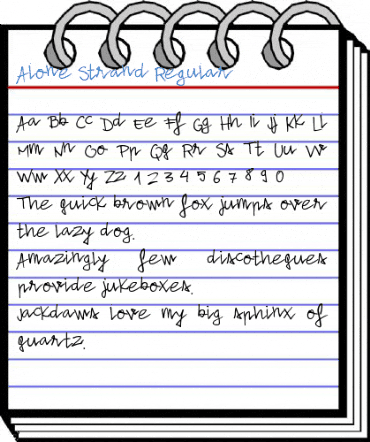 Alone Strand Regular
Aa Bb Cc Dd Ee Ff Gg Hh Ii Jj Kk Ll
Mm Nn Oo Pp Qq Rr Ss Tt Uu Vv
Ww Xx Yy Zz 1 2 3 4 5 6 7 8 9 0
The quick brown fox jumps over
the lazy dog.
Amazingly few discotheques
provide jukeboxes.
Jackdaws love my big sphinx of
quartz.